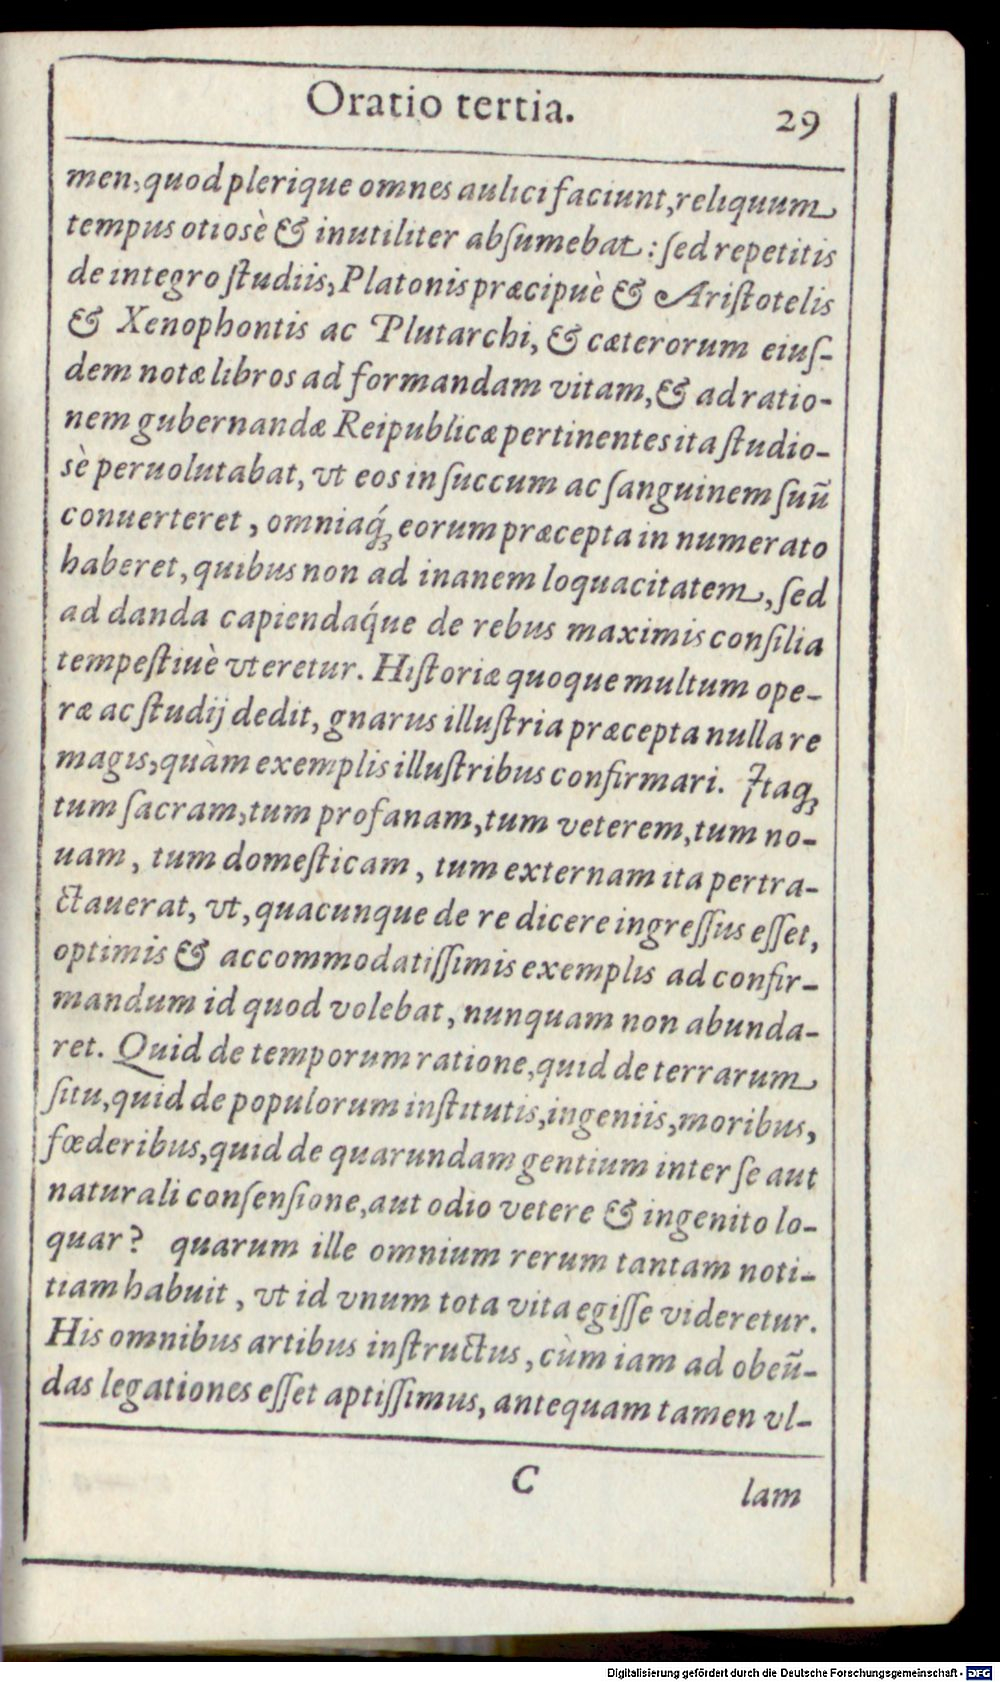 Oratio tertia. 29
men, quod plerique omnes aulici faciunt, reliquum
tempus otiosè & inutiliter absumebat : sed repetitis
de integro studiis, Platonis præcipuè & Aristotelis
& Xenophontis ac Plutarchi, & cæterorum eius-
dem notæ libros ad formandam vitam, & ad ratio-
nem gubernandæ Reipublicæ pertinentes ita studio-
sè peruolutabat, vt eos in succum ac sanguinem suũ
conuerteret, omniaq́ꝫ eorum præcepta in numerato
haberet, quibus non ad inanem loquacitatem, sed
ad danda capiendaq́ue de rebus maximis consilia
tempestiuè vteretur. Historiæ quoque multum ope-
ræ ac studij dedit, gnarus illustria præcepta nulla re
magis, quàm exemplis illustribus confirmari. Itaqꝫ
tum sacram, tum profanam, tum veterem, tum no-
uam, tum domesticam, tum externam ita pertra-
ctauerat, vt, quacunque de re dicere ingressus esset,
optimis & accommodatissimis exemplis ad confir-
mandum id quod volebat, nunquam non abunda-
ret. Quid de temporum ratione, quid de terrarum
situ, quid de populorum institutis, ingeniis, moribus,
fœderibus, quid de quarundam gentium inter se aut
naturali consensione, aut odio vetere & ingenito lo-
quar? quarum ille omnium rerum tantam noti-
tiam habuit, vt id vnum tota vita egisse videretur.
His omnibus artibus instructus, cùm iam ad obeũ-
das legationes esset aptissimus, antequam tamen vl-
C lam
Digitalisierung gefördert durch die Deutsche Forschungsgemeinschaft - DFG